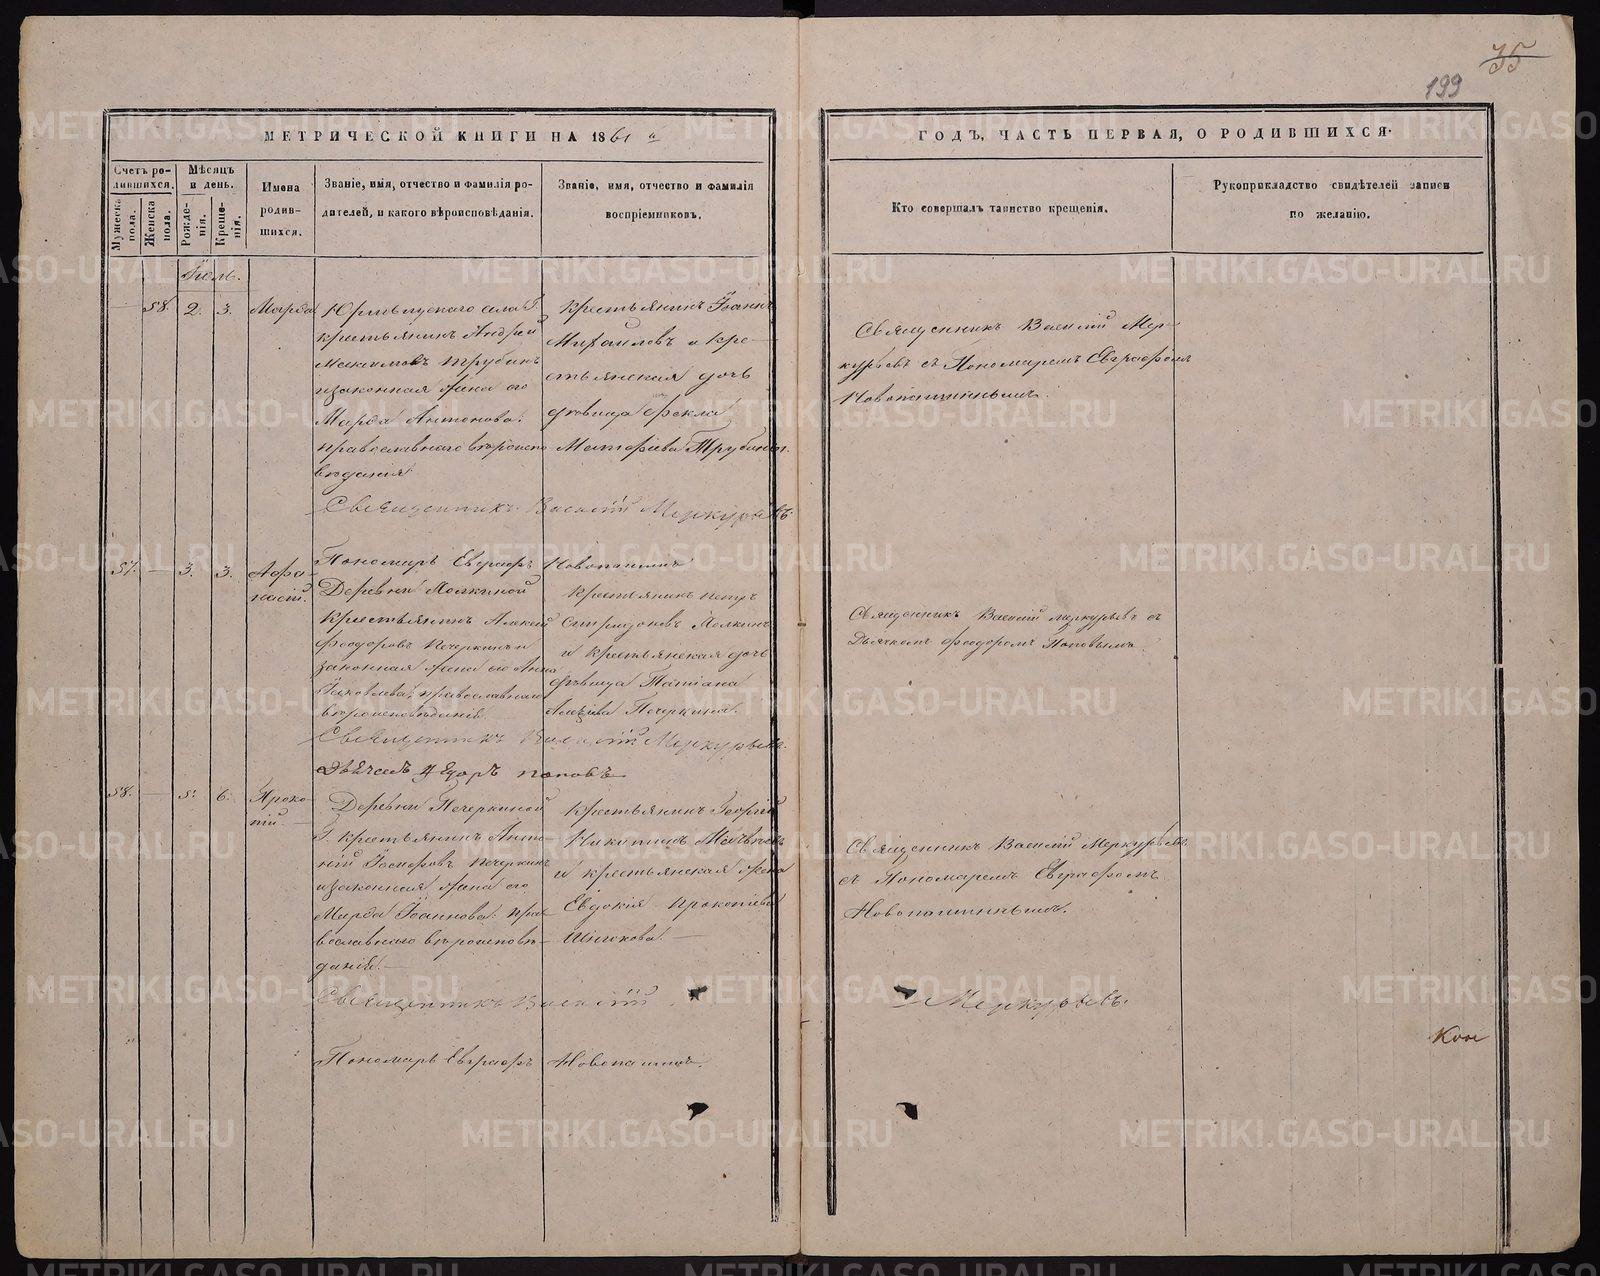 35
199
МЕТРИЧЕСКОЙ КНИГИ НА 1861 й
ГОДЪ, ЧАСТЬ ПЕРВАЯ, О РОДИВШИХСЯ.
Счетъ ро-
дившихся.
Мужеска
пола.
Женска
пола.
Мѣсяцъ
и день.
Рожде-
нія.
Креще-
нія.
Имена
родив-
шихся.
Званіе, имя, отчество и фамилія ро-
дителей, и какого вѣроисповѣданія.
Званіе, имя, отчество и фамилія
воспріемниковъ.
Кто совершалъ таинство крещенія.
Рукоприкладство свидѣтелей записи
по желанію.
Іюль.
58. 2. 3. Марѳа
села
крестьянинъ Андрей
Максимовъ Трубинъ
и законная жена его
Марѳа Антонова:
православнаго вѣроиспо
вѣданія
Крестьянинъ Іоаннъ
Михаиловъ и кре-
стьянская дочь
дѣвица Ѳекла
Матѳеева
Священникъ Василій Мер-
курьевъ съ Пономаремъ Евграфомъ
Новопашинымъ.
Священникъ Василій Меркурьевъ.
Пономарь Евграфъ Новопашинъ
57. 3. 3. Аѳа
насій.
Деревни
Крестьянинъ Алексѣй
Ѳеодоровъ Печеркинъ и
законная жена его Анна
Іаковлева, православнаго
вѣроисповѣданія
Крестьянинъ Петръ
Спиридоновъ
и крестьянская дочь
дѣвица Татіана
Печеркина.
Священникъ Василій Меркурьевъ съ
Дьячкомъ Ѳеодоромъ Поповымъ.
Священникъ Василій Меркурьевъ.
Дьячекъ Ѳедоръ Поповъ
58. 5. 6. Проко-
пій.
Деревни Печеркиной
Г. крестьянинъ Анто-
ній Іосифовъ Печеркинъ
и законная жена его
Марѳа Іоаннова: пра-
вославнаго вѣроисповѣ-
данія.
Крестьянинъ Георгій
Никитинъ
и крестьянская жена
Евдокія Прокопіева
Священникъ Василій Меркурьевъ
съ Пономаремъ Евграфомъ
Новопашинымъ.
Священникъ Василій Меркурьевъ.
Пономарь Евграфъ Новопашинъ.
METRIKI.GASO-URAL.RU